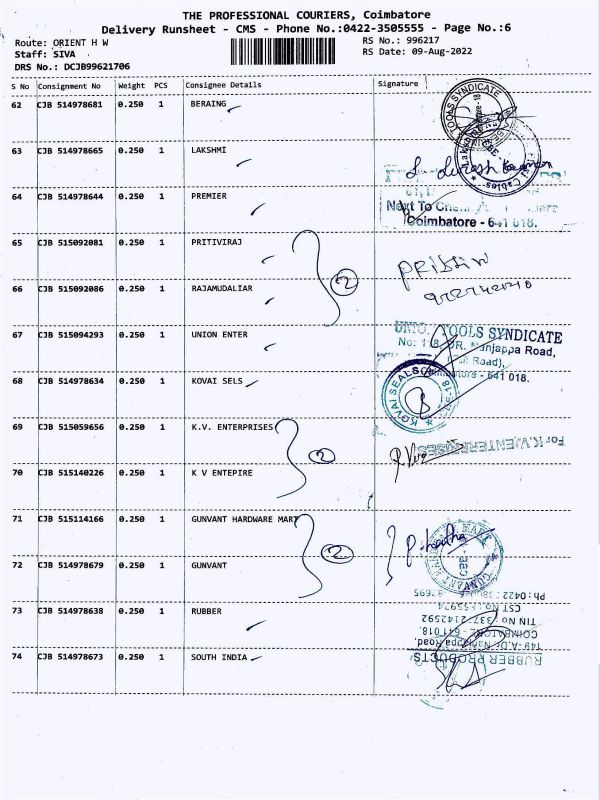 THE PROFESSIONAL COURIERS, Coimbatore
Delivery Runsheet - CMS - Phone No.:0422-3505555 - Page No.:6
Route: ORIENT H W
RS No.: 996217
Staff: SIVA
RS Date: 09-Aug-2022
DRS No.: DCJB99621706
S No Consignment No Weight PCS Consignee Details Signature
62 CJB 514978681 0.250 1 BERAING
TOOLS SYNDICATE
63 CJB 514978665 0.250 1 LAKSHMI
Cables
64 CJB 514978644 0.250 1 PREMIER
Next To
Coimbatore - 641 018.
65 CJB 515092081 0.250 1 PRITIVIRAJ
2
66 CJB 515092086 0.250 1 RAJAMUDALIAR
67 CJB 515094293 0.250 1 UNION ENTER
TOOLS SYNDICATE
Nanjappa Road,
Road),
641 018.
68 CJB 514978634 0.250 1 KOVAI SELS
KOVAI SEALS
69 CJB 515059656 0.250 1 K.V. ENTERPRISES
2
For K.V. ENTERPRISES
70 CJB 515140226 0.250 1 K V ENTEPIRE
71 CJB 515114166 0.250 1 GUNVANT HARDWARE MART
2
72 CJB 514978679 0.250 1 GUNVANT
73 CJB 514978638 0.250 1 RUBBER
Ph: 0422
TIN NO
COIMBATORE
RUBBER PRODUCTS
74 CJB 514978673 0.250 1 SOUTH INDIA